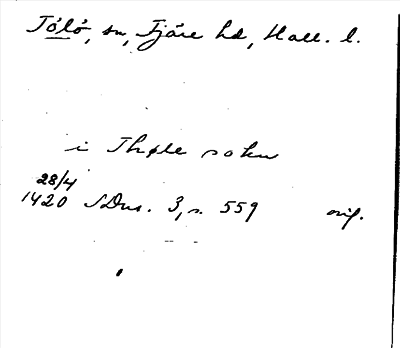 Tölö, sn, Fjäre hd, Hall. l.
i Thøle sokn
28/4
1420 SDns. 3, s. 559 orig.